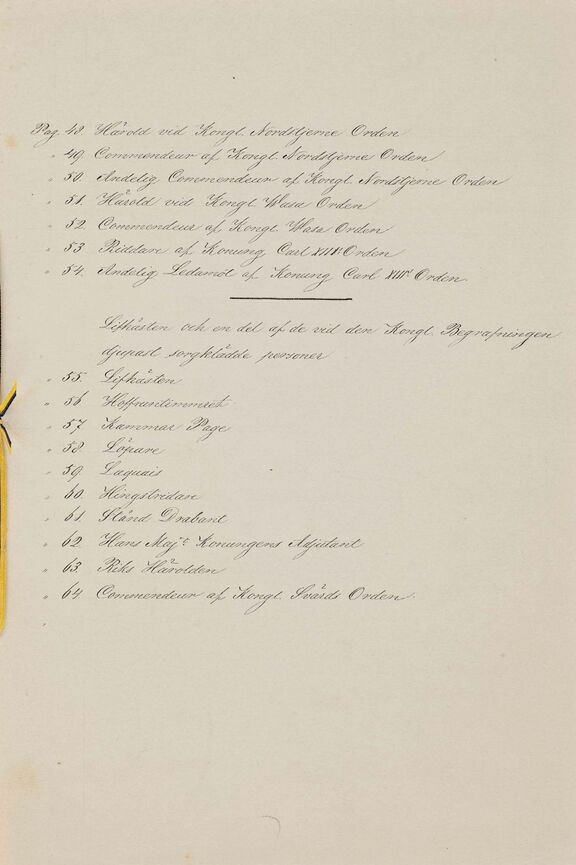 Pag. 48. Härold vid Kongl. Nordstjerne Orden
" 49. Commendeur af Kongl. Nordstjerne Orden
" 50. Andelig Commendeur af Kongl. Nordstjerne Orden
" 51. Härold vid Kongl. Wasa Orden
" 52. Commendeur af Kongl. Wasa Orden
" 53. Riddare af Konung Carl XIII: Orden
" 54. Andelig Ledamot af Konung Carl XIII: Orden.
Lifhästen och en del af de vid den Kongl. Begrafningen
djupast sorgklädde personer
" 55. Lifhästen
" 56. Hoffruntimmret.
" 57. Kammar Page
" 58. Löpare
" 59. Laquais
" 60. Hingstridare
" 61. Stånd Drabant
" 62. Hans Maj:t Konungens Adjutant
" 63. Riks Härolden
" 64. Commendeur af Kongl. Svärds Orden.